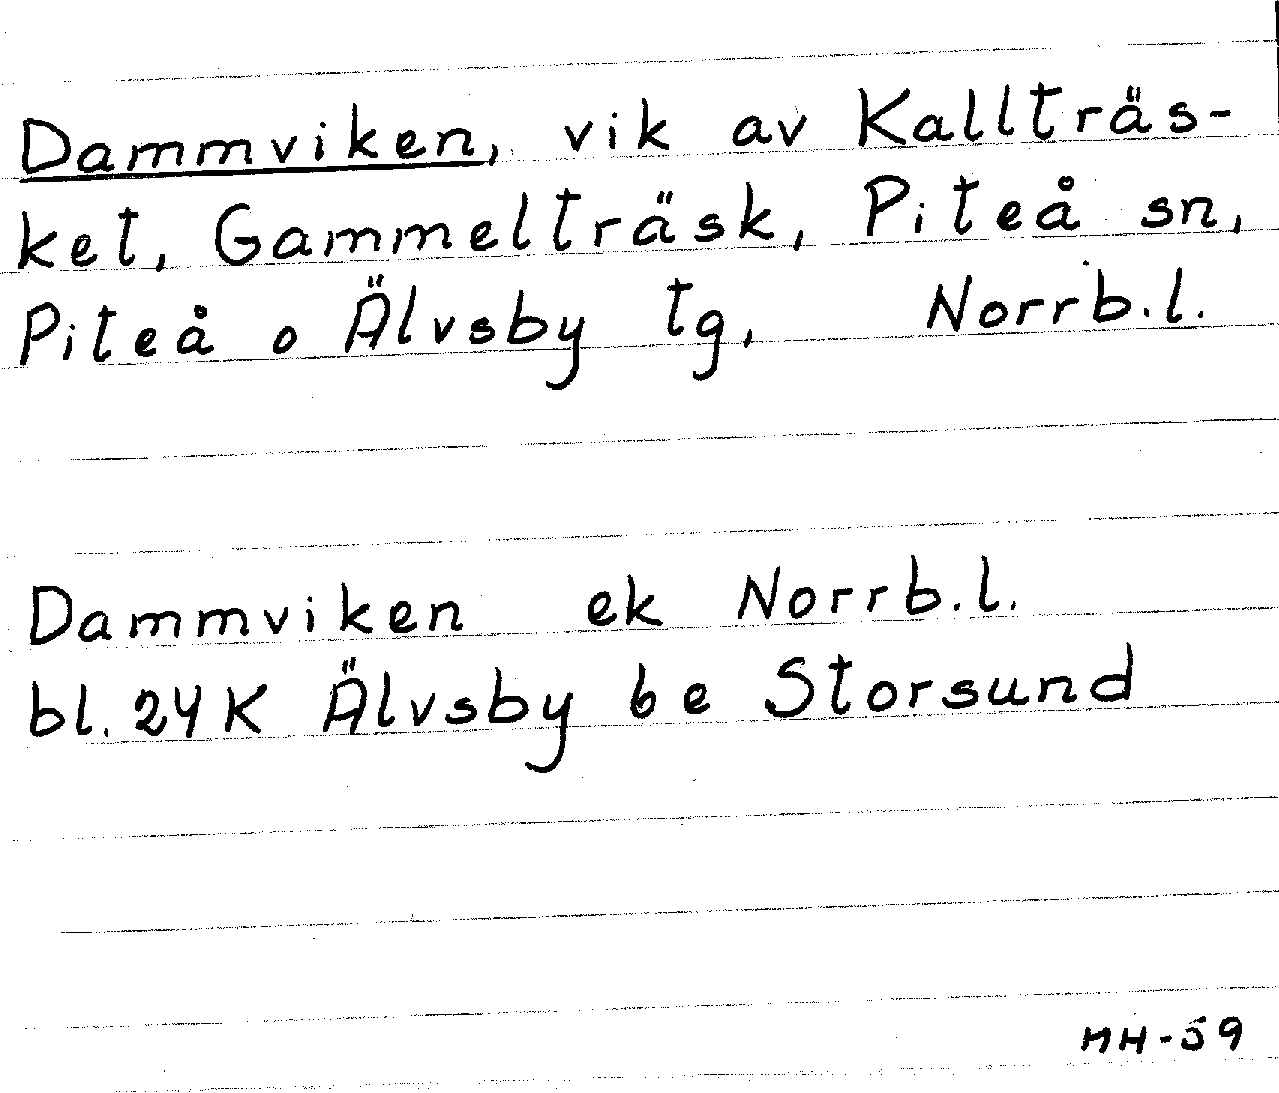 Dammviken, vik av Kallträs-
ket, Gammelträsk, Piteå sn,
Piteå o Älvsby tg, Norrb.l.
Dammviken ek Norrb.l.
bl. 24K Älvsby 6e Storsund
MH-59